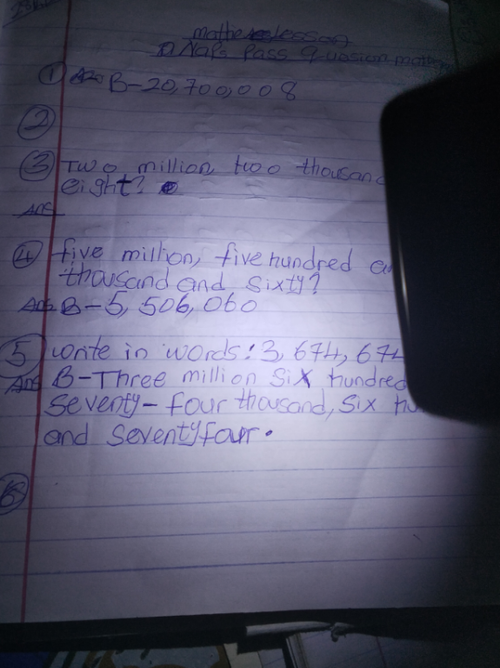 maths lesson
Naps Pass Quosion maths
① Ans B-20,700,008
②
③ Two million two thousand
eight?
Ans
④ five million, five hundred
thousand and sixty?
Ans B-5,506,060
5 write in words: 3,674,674
Ans B-Three million six hundred
seventy-four thousand, six
and seventyfour.
6